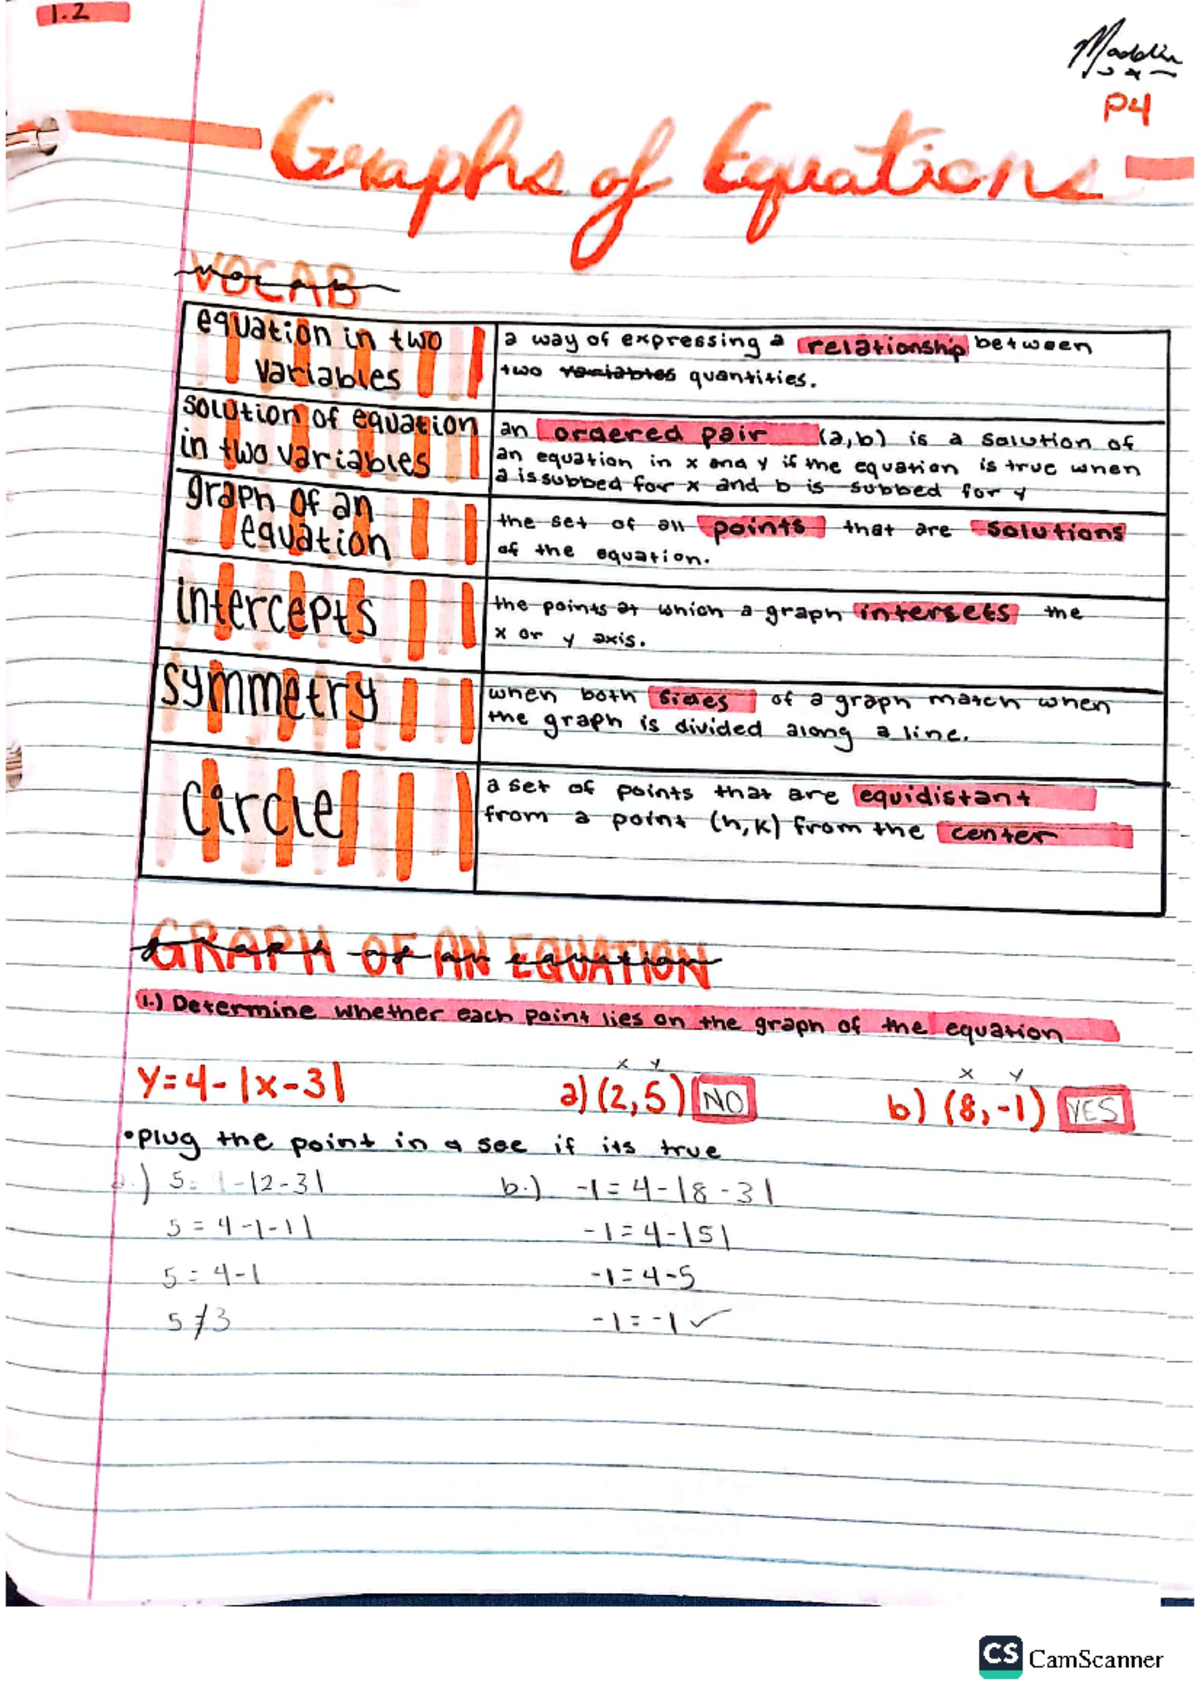 1.2
P4
Graphs of Equations
VOCAB
equation in two
variables
a way of expressing a relationship between
two variables quantities.
solution of equation
in two variables
an ordered pair (a,b) is a solution of
an equation in x and y if the equation is true when
a is subbed for x and b is subbed for y
graph of an
equation
the set of all points that are solutions
of the equation.
intercepts
the points at which a graph intersets the
x or y axis.
symmetry
when both sides of a graph match when
the graph is divided along a line.
circle
a set of points that are equidistant
from a point (h,k) from the center
GRAPH OF AN EQUATION
graph of an equation
1.) Determine whether each point lies on the graph of the equation
x y
x y
y=4-|x-3| a) (2,5) NO b) (8,-1) YES
•plug the point in a see if its true
a.) 5= -|2-3| b.) -1=4-|8-3|
5=4-|-1| -1=4-|5|
5=4-1 -1=4-5
5≠3 -1=-1✓
CS CamScanner